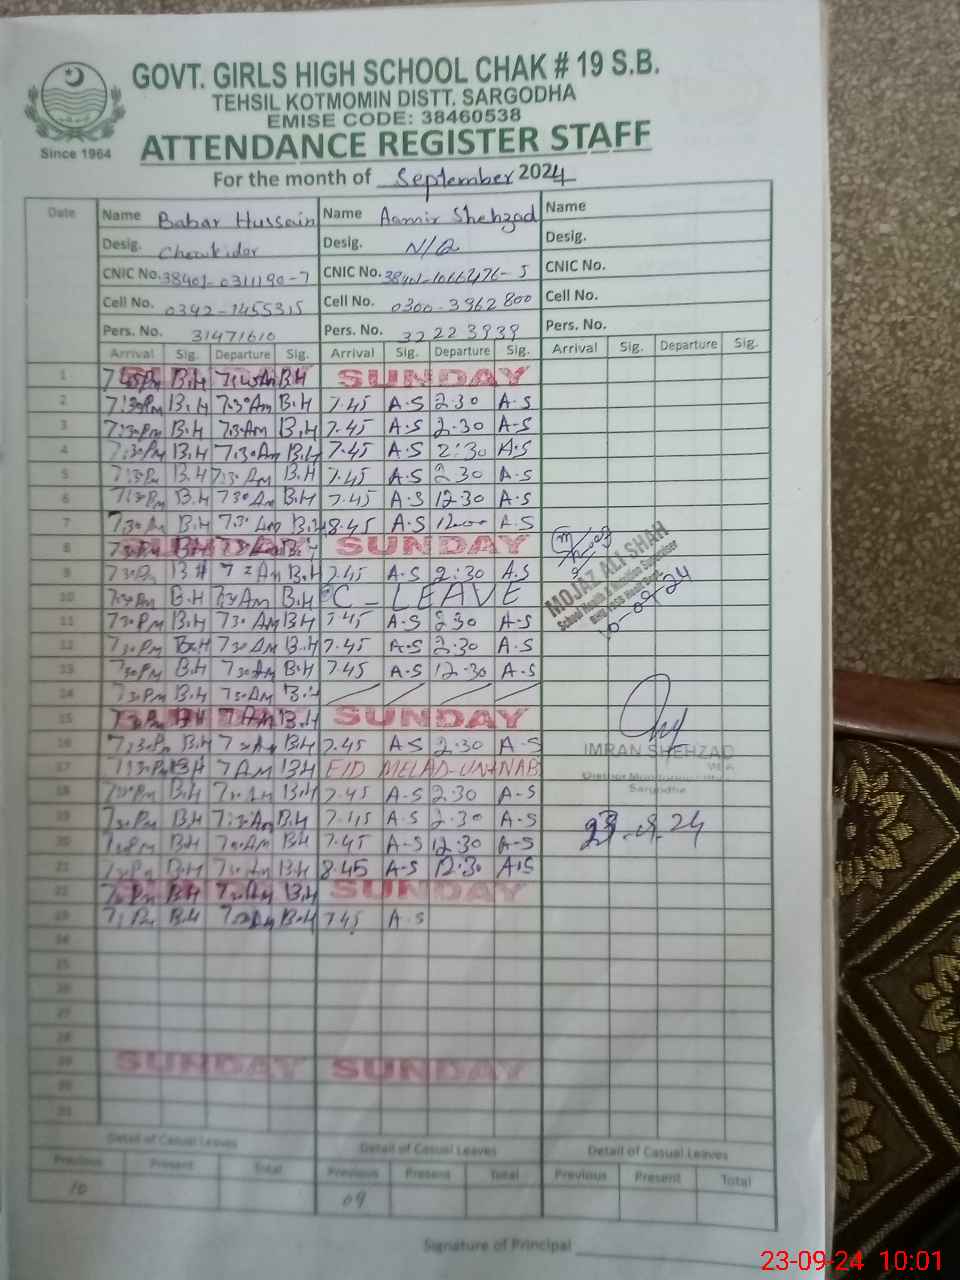 GOVT. GIRLS HIGH SCHOOL CHAK # 19 S.B.
TEHSIL KOTMOMIN DISTT. SARGODHA
EMISE CODE: 38460538
Since 1964
ATTENDANCE REGISTER STAFF
For the month of September 2024
Date Name Babar Hussain Name Aamir Shehzad Name
Desig. Chowkidar Desig. N/Q Desig.
CNIC No. 38401-0311190-7 CNIC No. 38401-1066476-5 CNIC No.
Cell No. 0342-7455315 Cell No. 0300-3962800 Cell No.
Pers. No. 31471610 Pers. No. 32223939 Pers. No.
Arrival Sig. Departure Sig. Arrival Sig. Departure Sig. Arrival Sig. Departure Sig.
1 7:45Pm B.H 7:45Am B.H SUNDAY
2 7:30Pm B.H 7:30Am B.H 7.45 A.S 2:30 A.S
3 7:30Pm B.H 7.30Am B.H 7.45 A.S 2.30 A.S
4 7:30Pm B.H 7.30Am B.H 7.45 A.S 2:30 A.S
5 7:30Pm B.H 7:30Am B.H 7.45 A.S 2.30 A.S
6 7:30Pm B.H 7.30Am B.H 7.45 A.S 12.30 A.S
7 7.30 B.H 7.30 Am B.H 8.45 A.S 12.00 A.S
8 SUNDAY SUNDAY
9 7.30Pm B.H Am B.H 7.45 A.S 2:30 A.S
10 B.H 7.30Am B.H C-LEAVE
MOJAZ ALI SHAH
10-09-24
11 7.30PM B.H 7.30 AM B.H 7.45 A.S 2.30 A.S
12 7.30PM B.H 7.30AM B.H 7.45 A.S 2.30 A.S
13 7.30PM B.H 7.30AM B.H 7.45 A.S 12.30 A.S
14 7.30PM B.H 7.30AM B.H
15 B.H 7 AM B.H SUNDAY
16 7.30Pm B.H B.H 7.45 A.S 2:30 A.S
IMRAN SHEHZAD
17 B.H 7 AM B.H EID MELAD-UN-NAB
18 B.H B.H 7.45 A.S 2.30 A.S
Sargodha
19 7.30Pm B.H 7.30Am B.H 7.45 A.S 2.30 A.S
23.09.24
20 B.H B.H 7.45 A.S 12.30 A.S
21 B.H B.H 8.45 A.S 12.30 A.S
22 B.H B.H SUNDAY
23 B.H B.H 7.45 A.S
24
25
26
27
28
29 SUNDAY SUNDAY
30
31
Detail of Casual Leaves Detail of Casual Leaves Detail of Casual Leaves
Previous Present Total Previous Present Total Previous Present Total
10 09
Signature of Principal
23-09-24 10:01